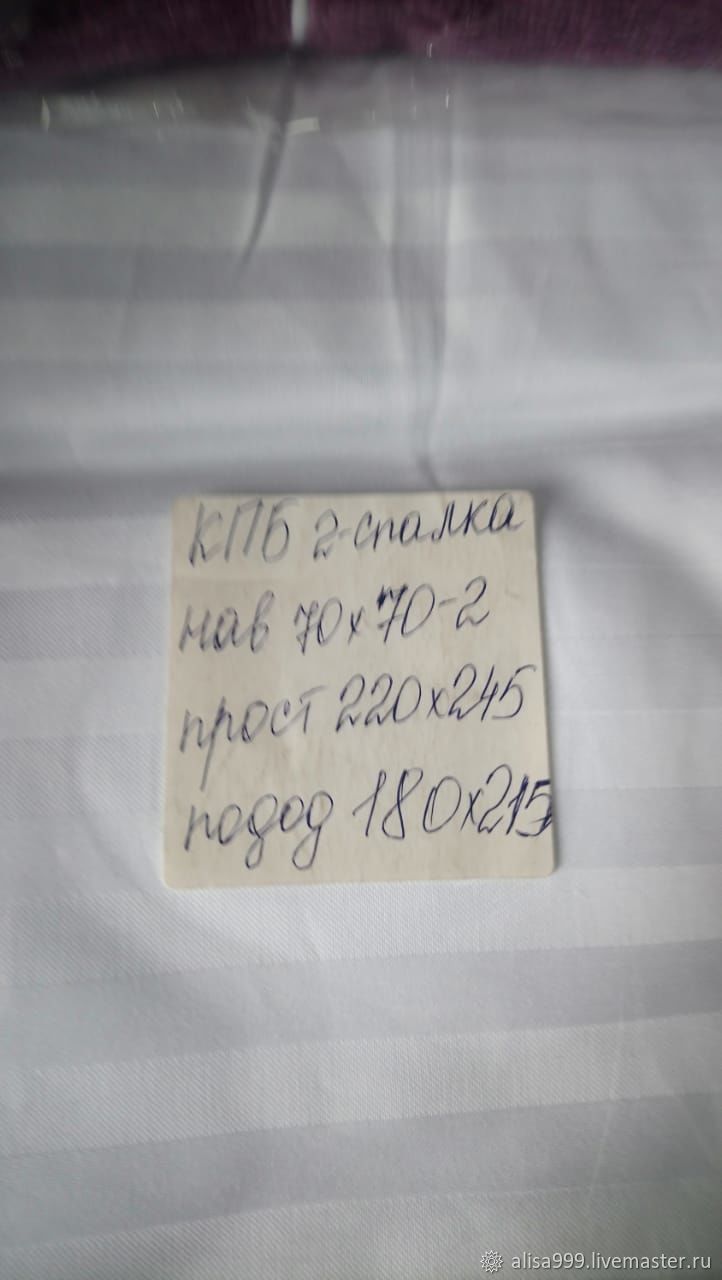 КПБ 2-спалка
нав 70х70-2
прост 220х245
подод 180х215
alisa999.livemaster.ru